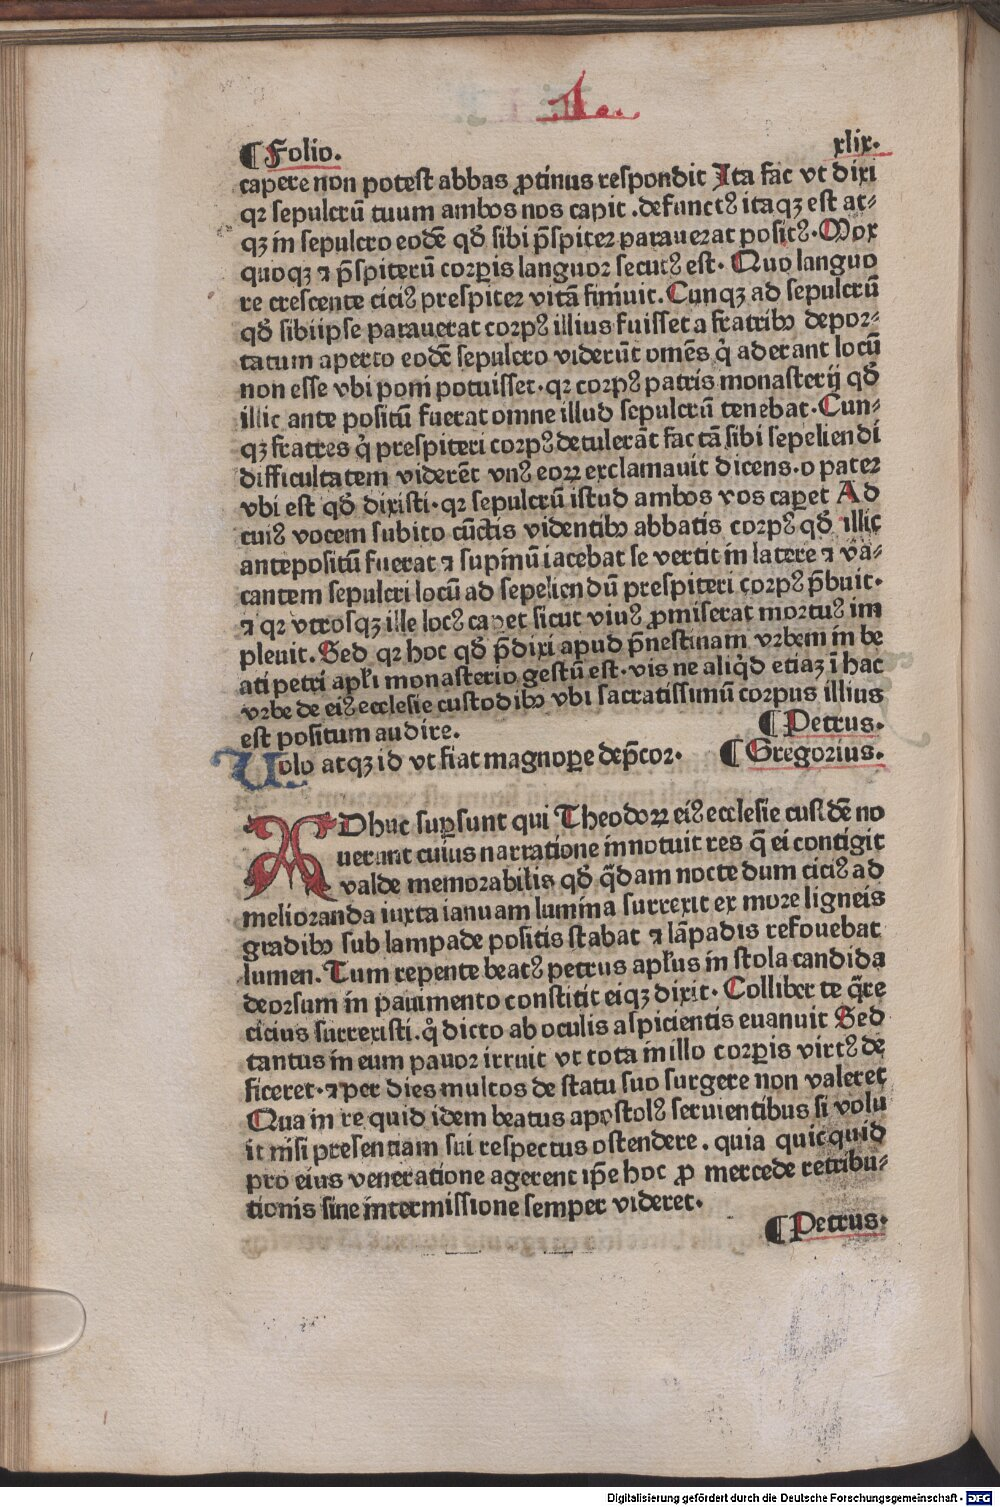 ¶Folio. xlix.
capere non potest abbas ꝓtinus respondit Ita fac vt dixi
qꝛ sepulcrū tuum ambos nos capit .defunctꝰ itaqꝫ est at⸗
qꝫ in sepulcro eodē qđ sibi p̄spiter parauerat positꝰ. Mox
quoqꝫ ⁊ p̄spiterū corꝑis languor secutꝰ est. Quo languo
re crescente citiꝰ prespiter vitā finiuit. Cunqꝫ ad sepulcrū
qđ sibiipse parauerat corpꝰ illius fuisset a fratribꝫ depor⸗
tatum aperto eodē sepulcro viderūt omēs q̇ aderant locū
non esse vbi poni potuisset. qꝛ corpꝰ patris monasterij qđ
illic ante positū fuerat omne illud sepulcrū tenebat. Cun⸗
qꝫ fratres q̇ prespiteri corpꝰ detulerāt factā sibi sepeliendi
difficultatem viderēt vnꝰ eoꝝ exclamauit dicens. o pater
vbi est qđ dixisti. qꝛ sepulcrū istud ambos vos caꝑet Ad
cuiꝰ vocem subito cūctis videntibꝫ abbatis corpꝰ qđ illic
antepositū fuerat ⁊ supinū iacebat se vertit in latere ⁊ va⸗
cantem sepulcri locū ad sepeliendū prespiteri corpꝰ p̄buit.
⁊ qꝛ vtrosqꝫ ille locꝰ capet sicut viuꝰ ꝓmiserat mortuꝰ im
pleuit. Sed qꝛ hoc qđ p̄dixi apud p̄nestinam vrbem in be
ati petri apłi monasterio gestū est. vis ne aliq̇d etiaꝫ ī hac
vrbe de eiꝰ ecclesie custodibꝫ vbi sacratissimū corpus illius
est positum audire. ¶Petrus.
Uolo atqꝫ id vt fiat magnoꝑe dep̄cor. ¶Gregorius.
ADhuc suꝑsunt qui Theodoꝝ eiꝰ ecclesie custodē no
uerant cuius narratione innotuit res q̄ ei contigit
valde memorabilis qđ q̄dam nocte dum citiꝰ ad
melioranda iuxta ianuam lumina surrexit ex more ligneis
gradibꝫ sub lampade positis stabat ⁊ lāpadis refouebat
lumen. Tum repente beatꝰ petrus apłus in stola candida
deorsum in pauimento constitit eiqꝫ dixit. Colliber te q̄re
citius surrexisti. q̊ dicto ab oculis aspicientis euanuit Sed
tantus in eum pauor irruit vt tota in illo corꝑis virtꝰ de
ficeret. ⁊ per dies multos de statu suo surgere non valeret
Qua in re quid idem beatus apostolꝰ seruientibus si volu
it nisi presentiam sui respectus ostendere. quia quicquid
pro eius veneratione agerent ip̄e hoc ꝓ mercede retribu⸗
tionis sine intermissione semper videret.
¶Petrus.
Digitalisierung gefördert durch die Deutsche Forschungsgemeinschaft - DFG